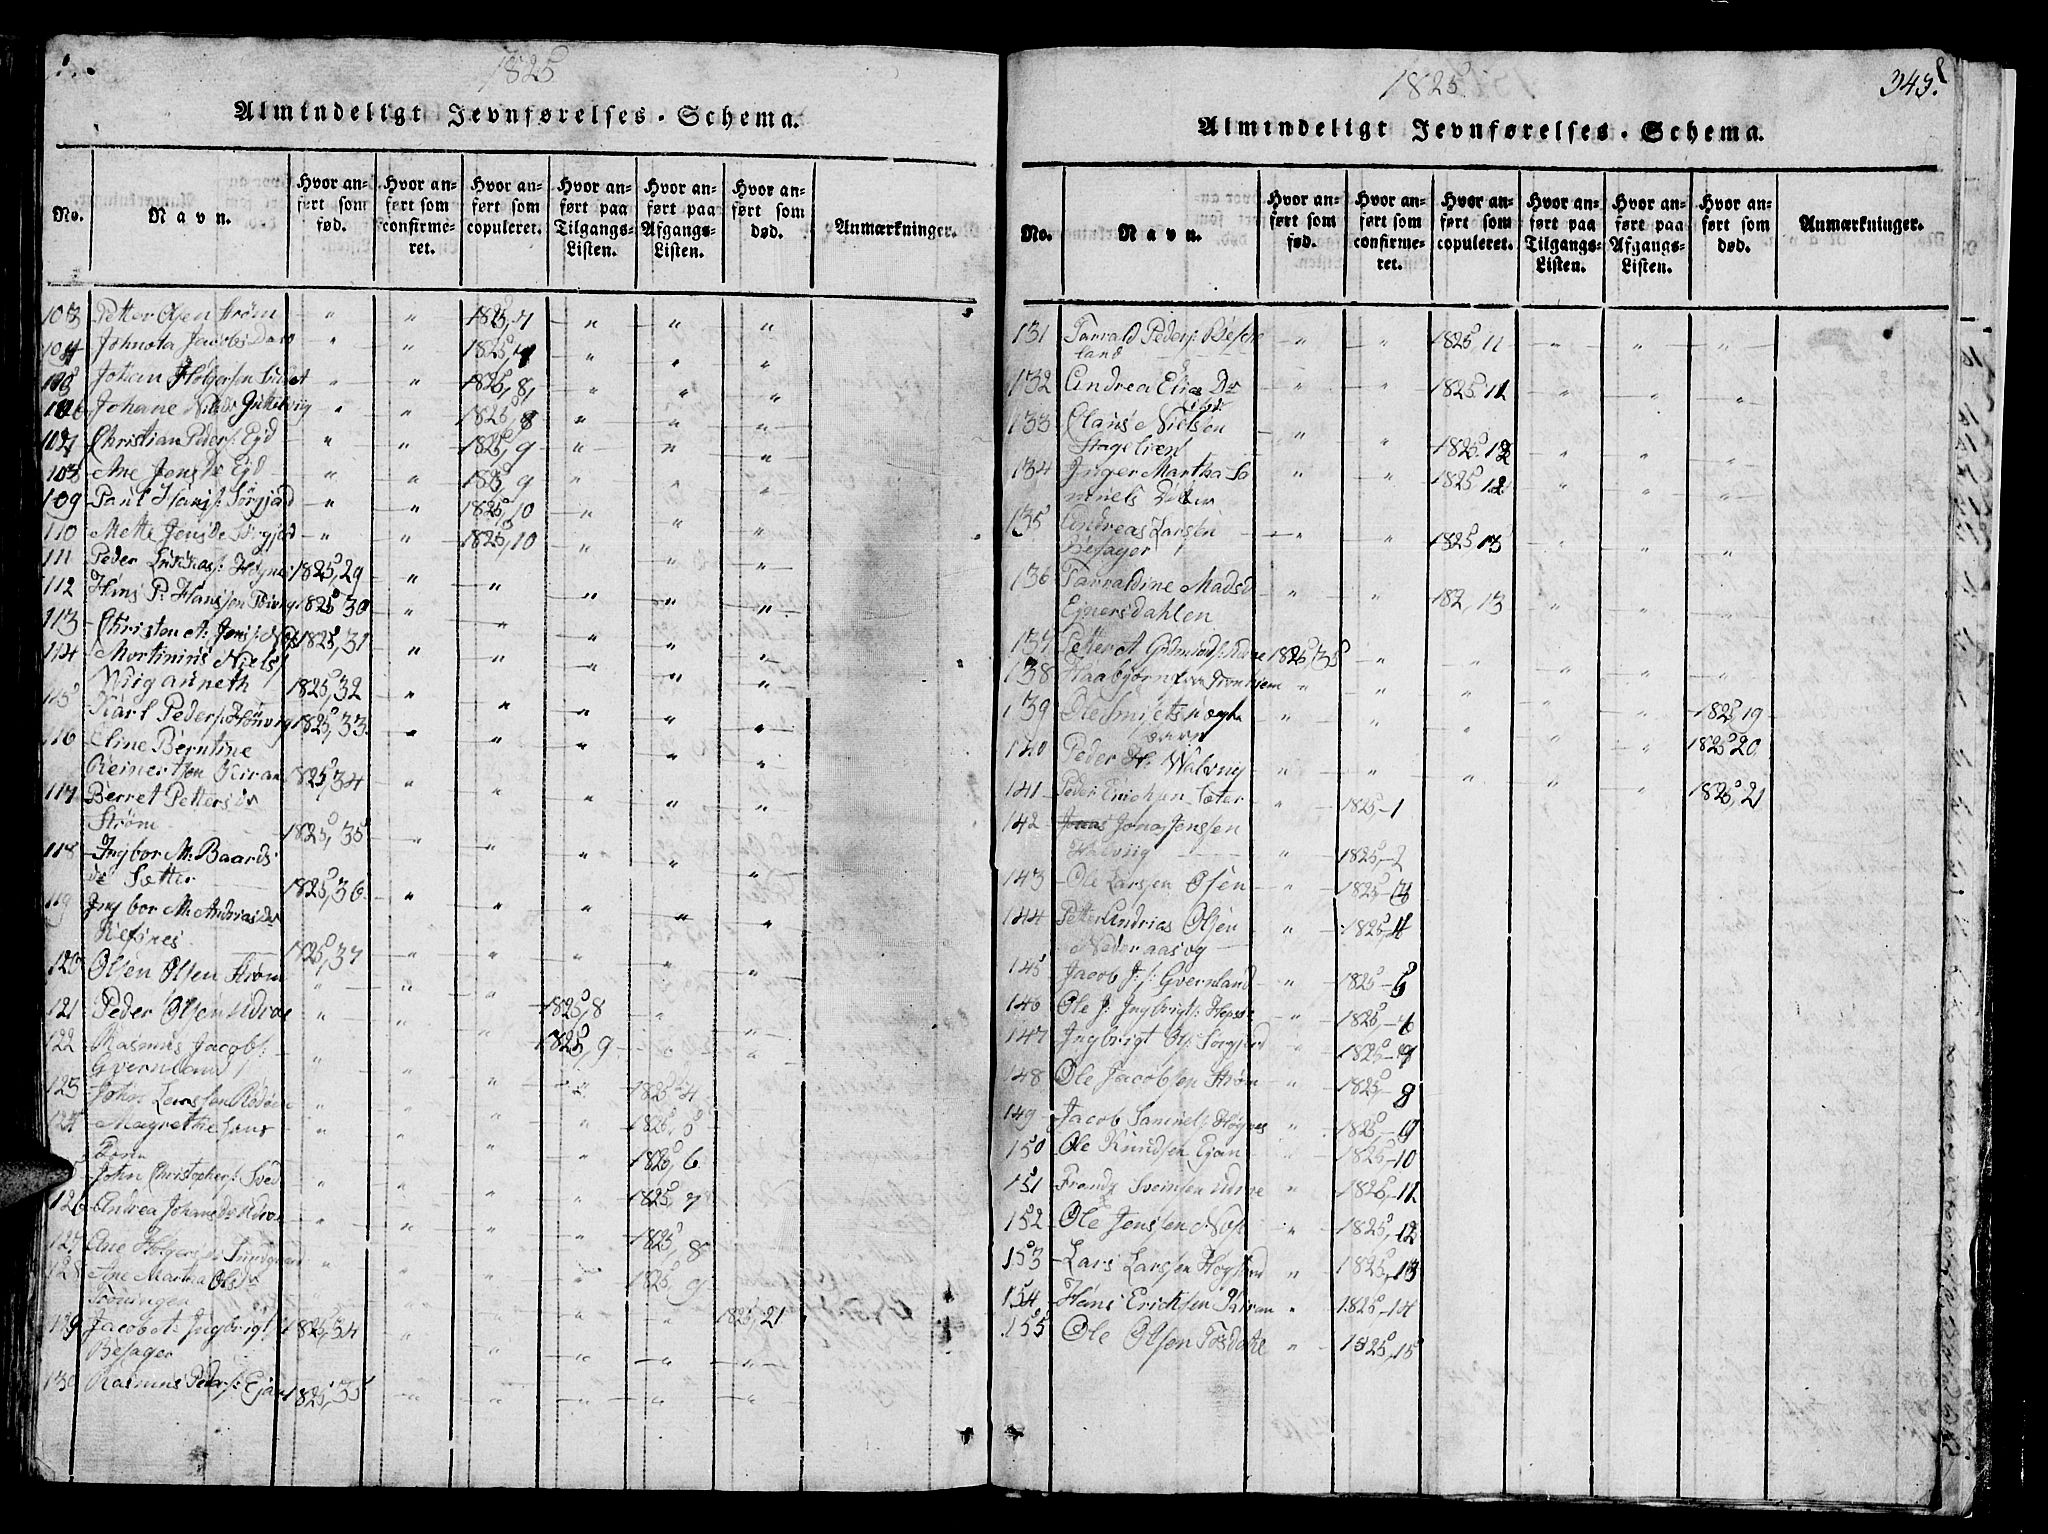 1825
Almindeligt Jevnførelses-Schema.
No. Navn. Hvor anført som fød. Hvor anført som confirmeret. Hvor anført som copuleret. Hvor anført paa Tilgangs-Listen. Hvor anført paa Afgangs-Listen. Hvor anført som død. Anmærkninger.
103 Petter Olsen Strøm " " 1825,7 " " "
104 Johnota Jacobs Datr " " 1825,7 " " "
105 Johan Holgersen " " 1825,8, " " "
106 Johane Nilsdr " " 1825,8 " " "
107 Christian Peders: Ejd " " 1825,9 " " "
108 Ane Jensdr Ejd " " 1825,9 " " "
109 Paul Hans: Sørgjød " " 1825,10 " " "
110 Mette Jensdr Sørgjød " " 1825,10 " " "
111 Peder 1825,29 " " " " "
112 Hans P: Hanssen 1825,30 " " " " "
113 Christen A: Jens: 1825,31 " " " " "
114 Mortinus Niels:
1825,32 " " " " "
115 Karl Peders: 1825,33 " " " " "
116 Eline Berntine
Reinertsen Kiran 1825,34 " " " " "
117 Berret Pettersdr
Strøm 1825,35 " " " " "
118 Ingbor M: Baards
dr Sætter 1825,36 " " " " "
119 Ingbor M: Andriasdr
Refsnes 1825,37 " " " " "
120 Olsen Olsen Strøm " " "
121 Peder Olsen Udroe " " " 1825,8 " "
122 Rasmus Jacobs:
Gvernland " " " 1825,9 " "
123 John " " " " 1825,4
124 Magrethe " " " " 1825,5
John Christophers: Sved " " " " 1825,6
126 Andrea Johansdr Udroe " " " " 1825,7
127 Ane Holgersdr " " " " 1825,8
128 Ane Martha Olsdr " " " " 1825,9
129 Jacob A: Ingbrigt:
Besager 1825,34 " " " " 1825,21
130 Rasmus Peders: Ejan 1825,35 " " " " "
1825
343.
Almindeligt Jevnførelses-Schema.
No. Navn. Hvor anført som fød. Hvor anført som confirmeret. Hvor anført som copuleret. Hvor anført paa Tilgangs-Listen. Hvor anført paa Afgangs-Listen. Hvor anført som død. Anmærkninger.
131 Tarrald Peders:
land " " 1825,11 " " "
132 Andrea Elias Dr " " 1825,11 " " "
133 Claus Nielsen
" " 1825,12 " " "
134 Inger Martha Sa
muels Datter " " 1825,12 " " "
135 Andreas Larsen
Besager " " 1825,13 " " "
136 Tarraldine Madsd
Ejnersdahlen " " 182,13 " " "
137 Petter A 1825,35 " " " " "
138 Haabjørn " " " " " 1825,19
139 Ole " " " " " 1825,20
140 Peder H: Walvuig " " " " " 1825,21
141 Peder Erichsen Sæter " 1825,-1
142 Jonas Jenssen
Walvuig " 1825,-2
143 Ole Larsen Olsen " 1825,-3
144 Petter Andrias Olsen
" 1825,-4
145 Jacob J: s: Gvernland " 1825,-5
146 Ole J: Ingbrigt: Hepsøe " 1825,-6
147 Ingbrigt Ols: Sørgjød " 1825,-7
148 Ole Jacobsen Strøm " 1825,-8
149 Jacob Samuel: Høgnes " 1825,-9
150 Ole Knudsen Ejan " 1825,-10
151 Frandz Svensen Udroe " 1825,-11
152 Ole Jenssen " 1825,-12
153 Lars Larssen " 1825,-13
154 Hans Ericksen Kiran " 1825,-14
155 Ole Olsen " 1825,-15